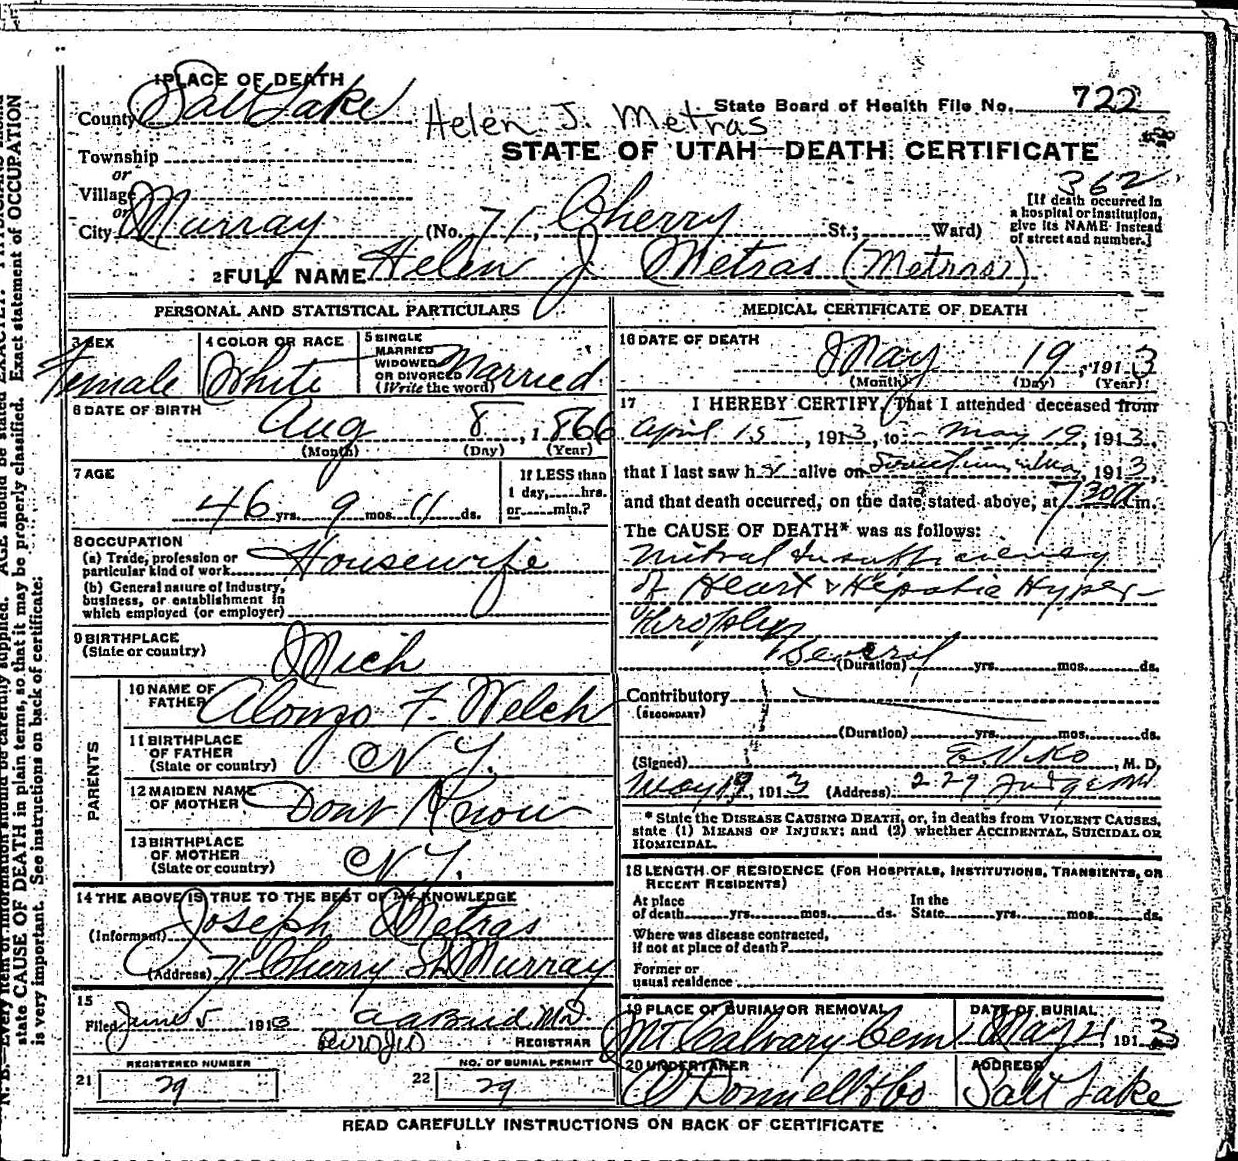 1 PLACE OF DEATH
County Salt Lake
Helen J. Metras
State Board of Health File No. 722
Township
or
Village
or
STATE OF UTAH—DEATH CERTIFICATE
362
[If death occurred in
a hospital or institution,
give its NAME instead
of street and number.]
City Murray (No. 71, Cherry St.; Ward)
2 FULL NAME Helen J Metras (Metras)
PERSONAL AND STATISTICAL PARTICULARS
3 SEX Female
4 COLOR OR RACE White
5 SINGLE
MARRIED
WIDOWED
OR DIVORCED
(Write the word) Married
6 DATE OF BIRTH
Aug 8, 1866
(Month) (Day) (Year)
7 AGE
46 yrs. 9 mos. 11 ds.
If LESS than
1 day, hrs.
or min.?
8 OCCUPATION
(a) Trade, profession or
particular kind of work Housewife
(b) General nature of industry,
business, or establishment in
which employed (or employer)
9 BIRTHPLACE
(State or country) Mich
PARENTS
10 NAME OF
FATHER Alonzo F. Welch
11 BIRTHPLACE
OF FATHER
(State or country) N.Y.
12 MAIDEN NAME
OF MOTHER Dont Know
13 BIRTHPLACE
OF MOTHER
(State or country) N.Y.
14 THE ABOVE IS TRUE TO THE BEST OF MY KNOWLEDGE
(Informant) Joseph Metras
(Address) 71 Cherry St. Murray
15
Filed June 5 1913
REGISTRAR
REGISTERED NUMBER
21 29
NO. OF BURIAL PERMIT
22 29
MEDICAL CERTIFICATE OF DEATH
16 DATE OF DEATH
May 19, 1913
(Month) (Day) (Year)
17 I HEREBY CERTIFY, That I attended deceased from
April 15, 1913, to May 19, 1913,
that I last saw her alive on Sometime in May, 1913,
and that death occurred, on the date stated above, at 730 a m.
The CAUSE OF DEATH* was as follows:
Mitral Insufficiency
of Heart & Hepatic Hyper-
throphy
Several
(Duration) yrs. mos. ds.
Contributory
(SECONDARY)
(Duration) yrs. mos. ds.
(Signed) E. V. Ko, M. D.
May 19, 1913 (Address) 229 Judge Bld
* State the DISEASE CAUSING DEATH, or, in deaths from VIOLENT CAUSES,
state (1) MEANS OF INJURY; and (2) whether ACCIDENTAL, SUICIDAL OR
HOMICIDAL.
18 LENGTH OF RESIDENCE (FOR HOSPITALS, INSTITUTIONS, TRANSIENTS, OR
RECENT RESIDENTS)
At place
of death yrs. mos. ds.
In the
State yrs. mos. ds.
Where was disease contracted,
if not at place of death?
Former or
usual residence
19 PLACE OF BURIAL OR REMOVAL
Mt Calvary Cem
DATE OF BURIAL
May 21, 1913
20 UNDERTAKER
O'Donnell & Co
ADDRESS
Salt Lake
READ CAREFULLY INSTRUCTIONS ON BACK OF CERTIFICATE
N. B.—Every item of information should be carefully supplied. AGE should be stated EXACTLY.
state CAUSE OF DEATH in plain terms, so that it may be properly classified. Exact statement of OCCUPATION
is very important. See instructions on back of certificate.